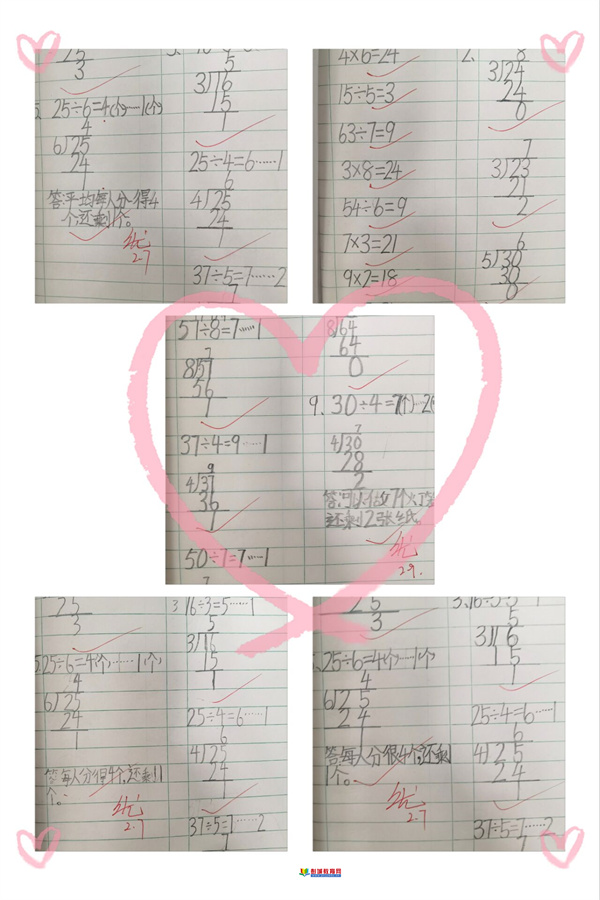 25
3
5. 25÷6=4(个)……1(个)
4
6√25
24
1
答:平均每人分得4
个,还剩1个。
优
2.7
5
3√16
15
1
25÷4=6……1
6
4√25
24
1
37÷5=7……2
7
4×6=24
15÷5=3
63÷7=9
3×8=24
54÷6=9
7×3=21
9×2=18
2、
8
3√24
24
0
7
3√23
21
2
6
5√30
30
0
57÷8=7……1
7
8√57
56
1
37÷4=9……1
9
4√37
36
1
50÷7=7……1
7
8√64
64
0
9、30÷4=7(个)……2(
7
4√30
28
2
还剩2张纸。
优
2.9.
25
3
5.25÷6=4(个)……1(个)
4
6√25
24
1
答:每人分得4个,还剩1
个。
优
2.7
3 16÷3=5……1
5
3√16
15
1
25÷4=6……1
6
4√25
24
1
37÷5=7……2
7
25
3
25÷6=4(个)……1(个)
4
6√25
24
1
答:每人分很4个,还剩
1个。
优
2.7
3.16÷3=5 1
5
3√16
15
1
25÷4=6……1
6
4√25
24
1
37÷5=7……2
7